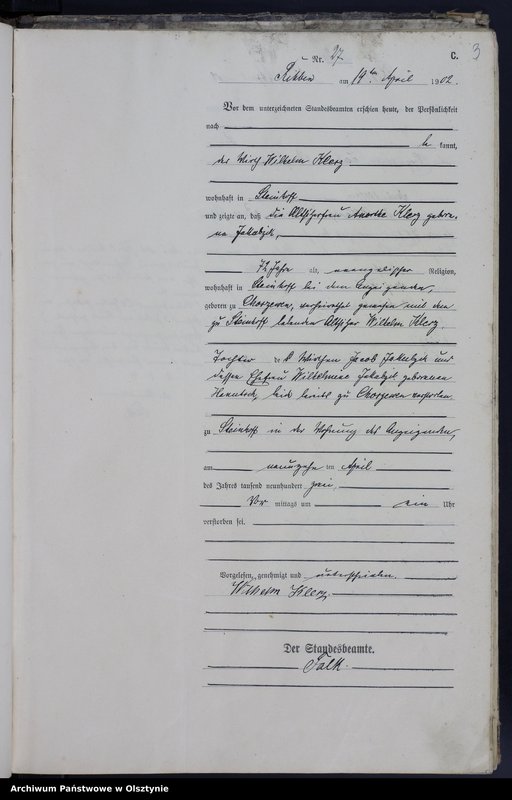 C.
3
Nr. 27
Ribben am 19ten April 1902.
Vor dem unterzeichneten Standesbeamten erschien heute, der Persönlichkeit
nach
be kannt,
der Wirth Wilhelm Klerz
wohnhaft in Steinhoff
und zeigte an, daß die Altsitzerfrau Anorthe Klerz gebore-
ne Jakubzik,
72 Jahre alt, evangelischer Religion,
wohnhaft in Steinhoff bei dem Anzeigenden,
geboren zu Chorzewen, verheirathet gewesen mit dem
zu Steinhoff lebenden Altsitzer Wilhelm Klerz
Tochter des Wirthen Jacob Jakubzik und
dessen Ehefrau Wilhelmine Jakubzik geborenen
beide bereits zu Chorzewen verstorben
zu Steinhoff in der Wohnung des Anzeigenden,
am neunzehn ten April
des Jahres tausend neunhundert zwei
Vor mittags um ein Uhr
verstorben sei.
Vorgelesen, genehmigt und unterschrieben.
Wilhelm Klerz.
Der Standesbeamte.
Falk.
Archiwum Państwowe w Olsztynie